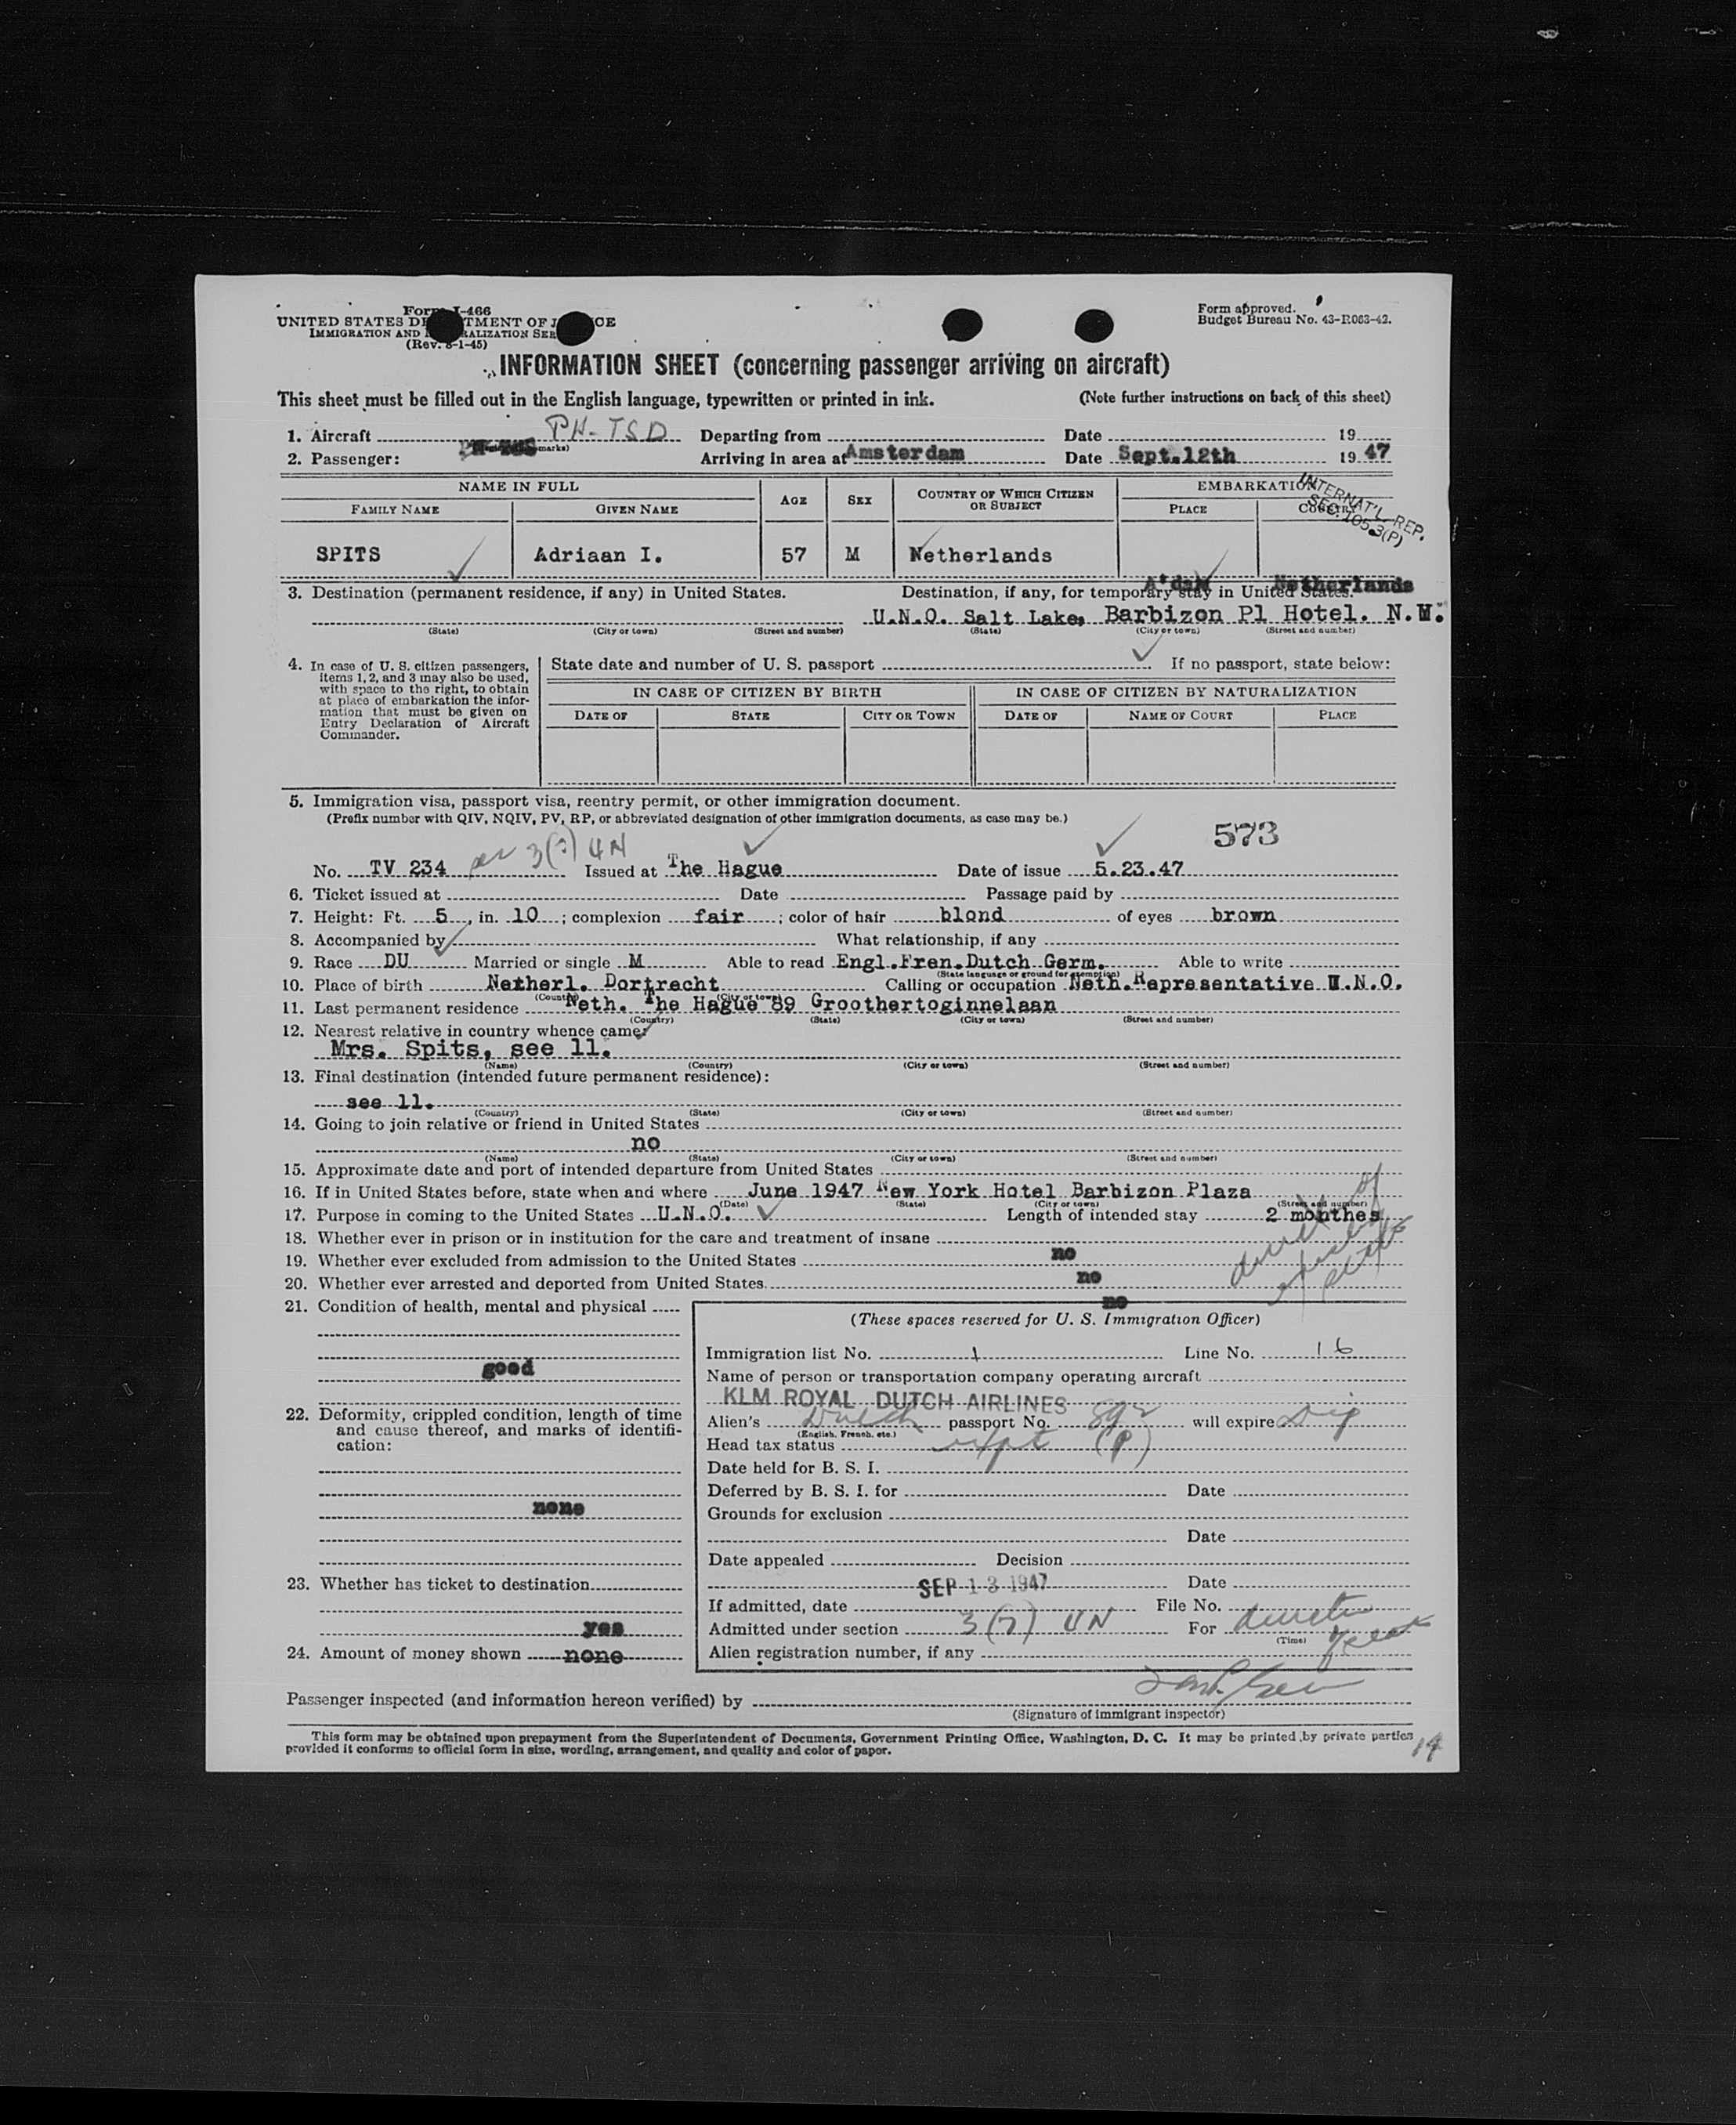 Form I-466
UNITED STATES DEPARTMENT OF JUSTICE
IMMIGRATION AND NATURALIZATION SERVICE
(Rev. 8-1-45)
Form approved.
Budget Bureau No. 43-R063-42.
INFORMATION SHEET (concerning passenger arriving on aircraft)
This sheet must be filled out in the English language, typewritten or printed in ink. (Note further instructions on back of this sheet)
1. Aircraft PH-TSD Departing from Date 19
2. Passenger: Arriving in area at Amsterdam Date Sept.12th 19 47
NAME IN FULL AGE SEX COUNTRY OF WHICH CITIZEN OR SUBJECT EMBARKATION
FAMILY NAME GIVEN NAME PLACE COUNTRY
INTERNAT'L. REP.
SEC. 105.3(P)
SPITS Adriaan I. 57 M Netherlands
A'dam Netherlands
3. Destination (permanent residence, if any) in United States. Destination, if any, for temporary stay in United States.
U.N.O. Salt Lake, Barbizon Pl Hotel. N.Y.
(State) (City or town) (Street and number) (State) (City or town) (Street and number)
4. In case of U. S. citizen passengers, items 1, 2, and 3 may also be used, with space to the right, to obtain at place of embarkation the information that must be given on Entry Declaration of Aircraft Commander.
State date and number of U. S. passport If no passport, state below:
IN CASE OF CITIZEN BY BIRTH IN CASE OF CITIZEN BY NATURALIZATION
DATE OF STATE CITY OR TOWN DATE OF NAME OF COURT PLACE
5. Immigration visa, passport visa, reentry permit, or other immigration document.
(Prefix number with QIV, NQIV, PV, RP, or abbreviated designation of other immigration documents, as case may be.)
573
No. TV 234 3(7) UN Issued at The Hague Date of issue 5.23.47
6. Ticket issued at Date Passage paid by
7. Height: Ft. 5, in. 10; complexion fair; color of hair blond of eyes brown
8. Accompanied by What relationship, if any
9. Race DU Married or single M Able to read Engl.Fren.Dutch Germ. Able to write
(State language or ground for exemption)
10. Place of birth Netherl. Dortrecht Calling or occupation Neth.Representative U.N.O.
(Country) (City or town)
11. Last permanent residence Neth. The Hague 89 Groothertoginnelaan
(Country) (State) (City or town) (Street and number)
12. Nearest relative in country whence came:
Mrs. Spits, see 11.
(Name) (Country) (City or town) (Street and number)
13. Final destination (intended future permanent residence):
see 11.
(Country) (State) (City or town) (Street and number)
14. Going to join relative or friend in United States
no
(Name) (State) (City or town) (Street and number)
15. Approximate date and port of intended departure from United States
16. If in United States before, state when and where June 1947 New York Hotel Barbizon Plaza
(Date) (State) (City or town) (Street and number)
17. Purpose in coming to the United States U.N.O. Length of intended stay 2 monthes
18. Whether ever in prison or in institution for the care and treatment of insane
no
19. Whether ever excluded from admission to the United States
no
20. Whether ever arrested and deported from United States
no
21. Condition of health, mental and physical
good
22. Deformity, crippled condition, length of time and cause thereof, and marks of identification:
none
23. Whether has ticket to destination
yes
24. Amount of money shown none
(These spaces reserved for U. S. Immigration Officer)
Immigration list No. 1 Line No. 16
Name of person or transportation company operating aircraft
KLM ROYAL DUTCH AIRLINES
Alien's Dutch passport No. 892 will expire Dip
(English, French, etc.)
Head tax status (P)
Date held for B. S. I.
Deferred by B. S. I. for Date
Grounds for exclusion
Date
Date appealed Decision
SEP 13 1947 Date
If admitted, date File No.
Admitted under section 3(7) UN For
(Time)
Alien registration number, if any
Passenger inspected (and information hereon verified) by
(Signature of immigrant inspector)
This form may be obtained upon prepayment from the Superintendent of Documents, Government Printing Office, Washington, D. C. It may be printed by private parties
provided it conforms to official form in size, wording, arrangement, and quality and color of paper.
14